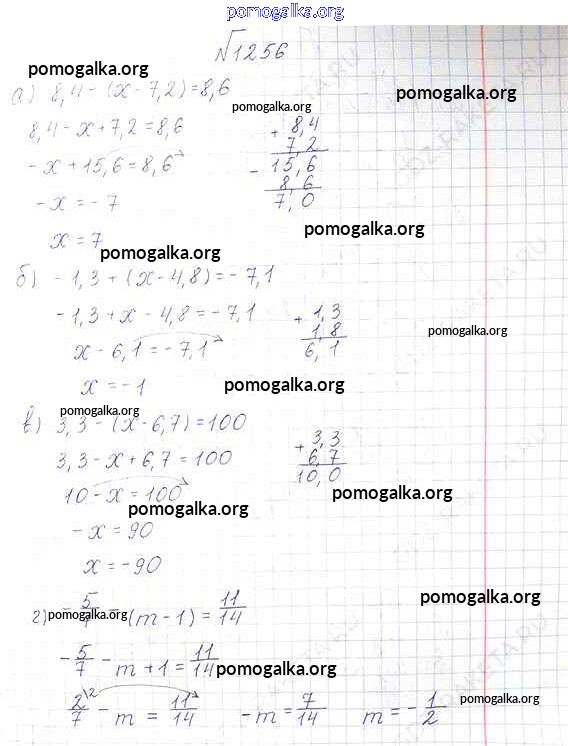 pomogalka.org
√1256
pomogalka.org
а) 8,4-(x-7,2)=8,6
pomogalka.org
pomogalka.org
8,4-x+7,2=8,6
+ 8,4
7,2
-x+15,6=8,6
- 15,6
8,6
7,0
-x=-7
pomogalka.org
x=7
pomogalka.org
б) -1,3+(x-4,8)=-7,1
-1,3+x-4,8=-7,1
+ 1,3
1,8
6,1
pomogalka.org
x-6,1=-7,1
x=-1
pomogalka.org
pomogalka.org
в) 3,3-(x-6,7)=100
3,3-x+6,7=100
+ 3,3
6,7
10,0
10-x=100
pomogalka.org
pomogalka.org
-x=90
x=-90
pomogalka.org
г) -5/7-(m-1)=11/14
pomogalka.org
-5/7-m+1=11/14
pomogalka.org
2\2/7-m=11/14 -m=7/14 m=-1/2
pomogalka.org